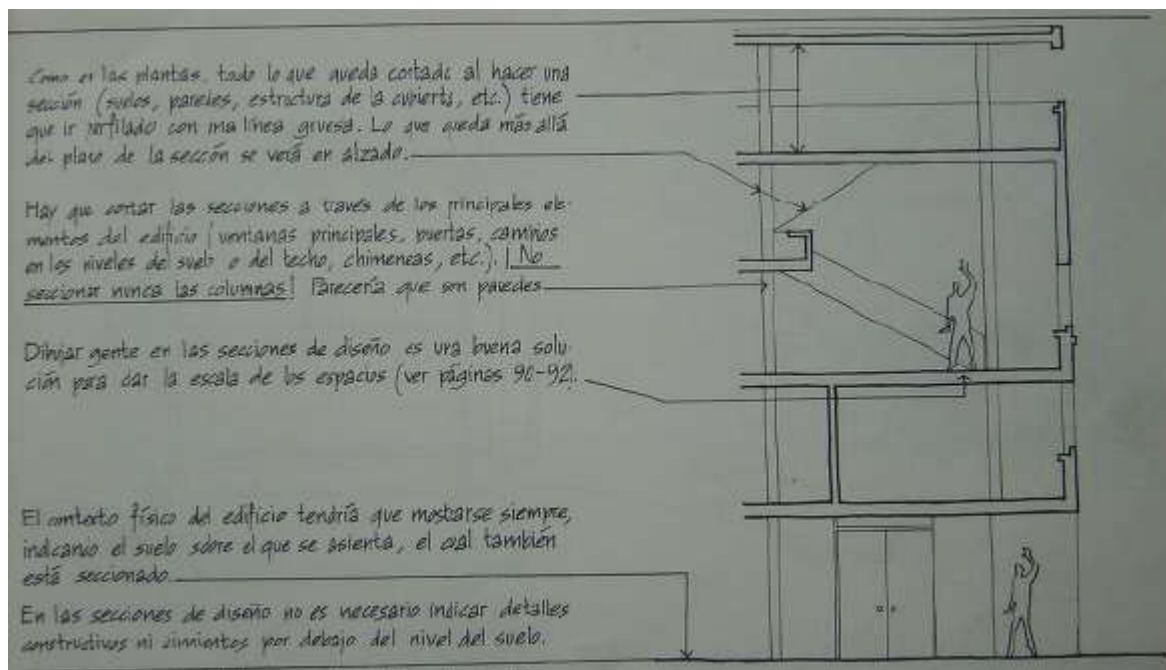 Como en las plantas, todo lo que queda cortado al hacer una
sección (suelos, paredes, estructura de la cubierta, etc.) tiene
que ir perfilado con una línea gruesa. Lo que queda más allá
del plano de la sección se verá en alzado.
Hay que cortar las secciones a través de los principales ele-
mentos del edificio (ventanas principales, puertas, cambios
en los niveles de suelo o del techo, chimeneas, etc.). ¡No
seccionar nunca las columnas! Parecería que son paredes
Dibujar gente en las secciones de diseño es una buena solu-
ción para dar la escala de los espacios (ver páginas 90-92).
El contexto físico del edificio tendría que mostrarse siempre,
indicando el suelo sobre el que se asienta, el cual también
está seccionado.
En las secciones de diseño no es necesario indicar detalles
constructivos ni cimientos por debajo del nivel del suelo.